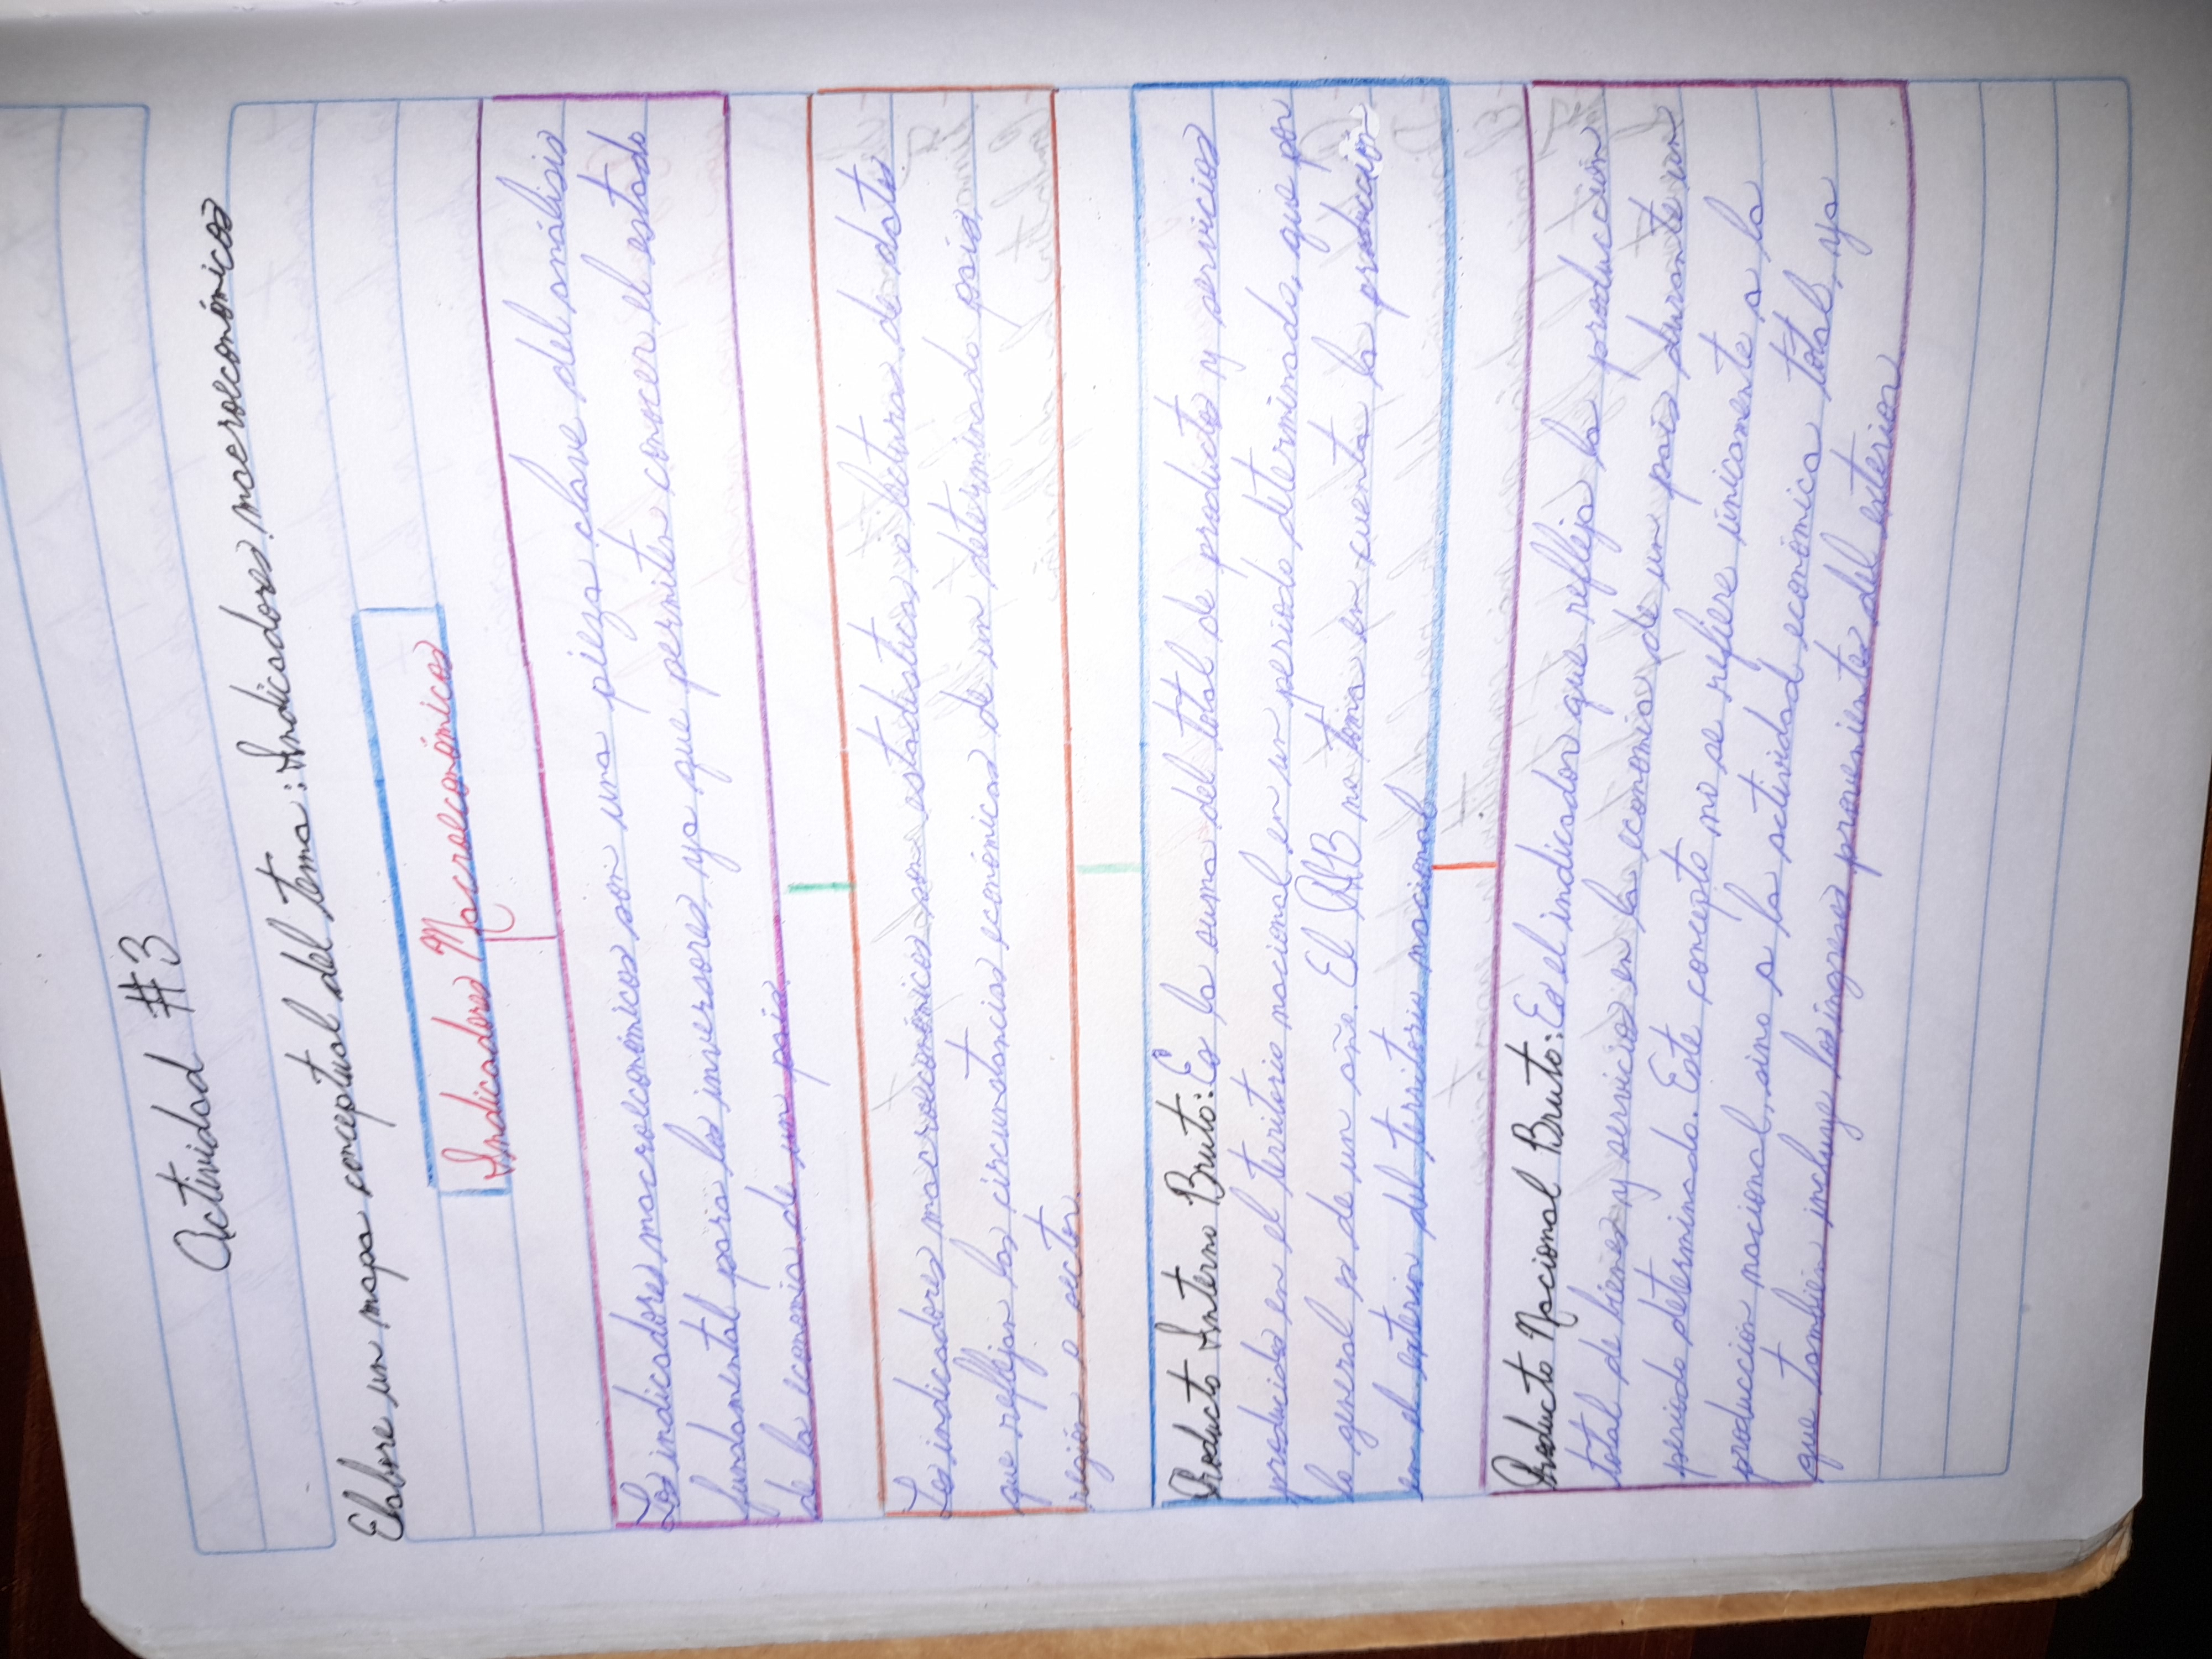 Actividad #3
Elabore un mapa conceptual del tema: Indicadores macroeconómicos
Indicadores Macroeconómicos
Los indicadores macroeconómicos son una pieza clave del análisis
fundamental para los inversores, ya que permiten conocer el estado
de la economia de un pais
Los indicadores macroeconómicos son estadisticas o lecturas de datos
que reflejan las circunstancias económicas de un determinado pais
region o sector
Producto Interno Bruto: Es la suma del total de productos y servicios
producidos en el territorio nacional en un periodo determinado, que por
lo general es de un año. El no toma en cuenta la produccion
en el exterior del territorio nacional
Producto Nacional Bruto: Es el indicador que refleja la produccion
total de bienes y servicios en la economia de un pais durante un
periodo determinado. Este concepto no se refiere únicamente a la
produccion nacional, sino a la actividad económica total, ya
que también incluye los ingresos provenientes del exterior